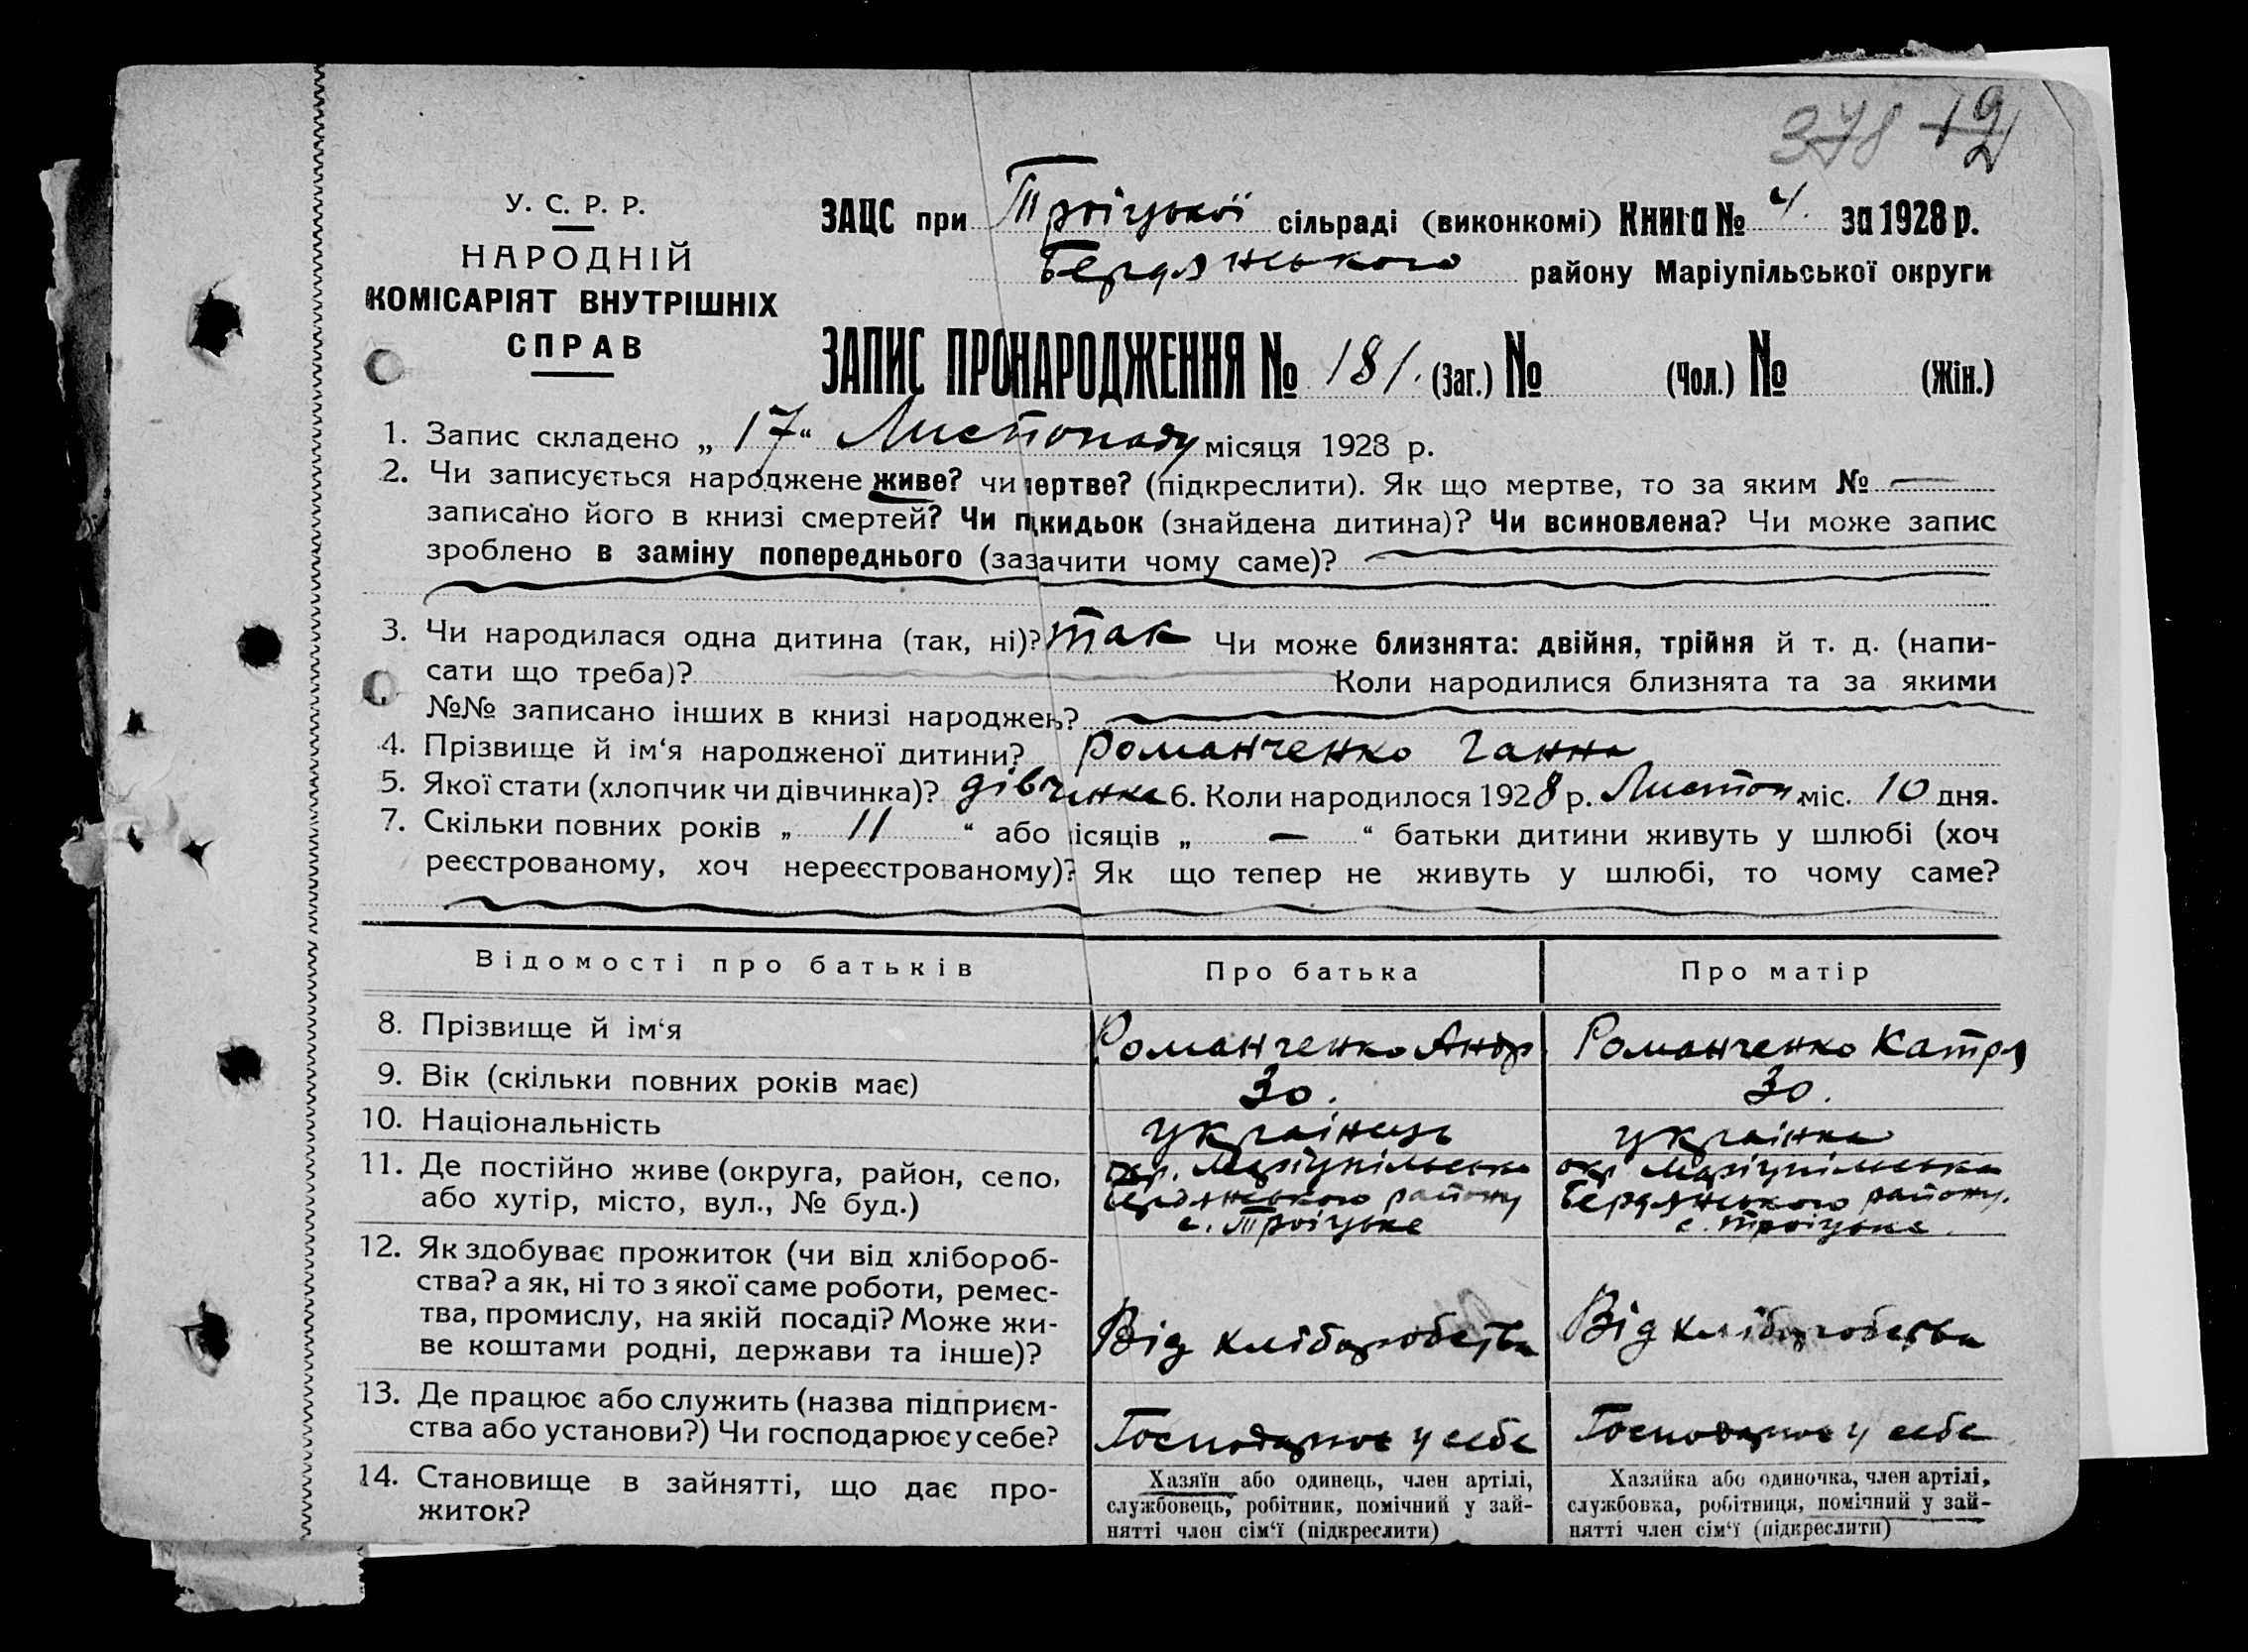 378 12
У. С. Р. Р.
НАРОДНІЙ
КОМІСАРІЯТ ВНУТРІШНІХ
СПРАВ
ЗАЦС при Троіцької сільраді (виконкомі) Книга № 4. за 1928 р.
Бердянського району Маріупільської округи
ЗАПИС ПРО НАРОДЖЕННЯ № 181. (Заг.) № (Чол.) № (Жін.)
1. Запис складено „ 17 “ Листопаду місяця 1928 р.
2. Чи записується народжене живе? чи мертве? (підкреслити). Як що мертве, то за яким № —
записано його в книзі смертей? Чи підкидьок (знайдена дитина)? Чи всиновлена? Чи може запис
зроблено в заміну попереднього (зазачити чому саме)?
3. Чи народилася одна дитина (так, ні)? так Чи може близнята: двійня, трійня й т. д. (напи-
сати що треба)? Коли народилися близнята та за якими
№№ записано інших в книзі народжень?
4. Прізвище й ім‘я народженої дитини? Романченко Ганна
5. Якої стати (хлопчик чи дівчинка)? дівчинка 6. Коли народилося 1928 р. Листоп. міс. 10 дня.
7. Скільки повних років „ 11 “ або місяців „ — “ батьки дитини живуть у шлюбі (хоч
реєстрованому, хоч нереєстрованому)? Як що тепер не живуть у шлюбі, то чому саме?
Відомості про батьків Про батька Про матір
8. Прізвище й ім‘я Романченко Андр. Романченко Катря
9. Вік (скільки повних років має) 30. 30.
10. Національність українець українка
11. Де постійно живе (округа, район, село, окр. Маріупільська окр Маріупільська
або хутір, місто, вул., № буд.) Бердянського району Бердянського району.
с. Троіцьке с. Троіцьке.
12. Як здобуває прожиток (чи від хлібороб-
ства? а як, ні то з якої саме роботи, ремес-
тва, промислу, на якій посаді? Може жи- Від хліборобства Від хліборобства
ве коштами родні, держави та інше)?
13. Де працює або служить (назва підприєм-
ства або установи?) Чи господарює у себе? Господарює у себе Господарює у себе
14. Становище в зайнятті, що дає про- Хазяїн або одинець, член артілі, Хазяйка або одиночка, член артілі,
житок? службовець, робітник, помічний у зай- службовка, робітниця, помічний у зай-
нятті член сім‘ї (підкреслити) нятті член сім‘ї (підкреслити)